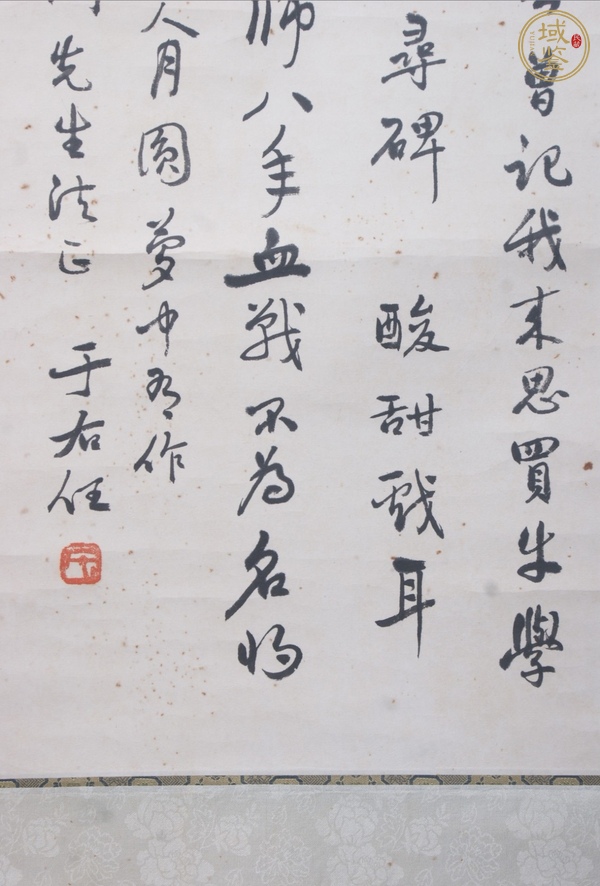 曾記我来思買牛學
尋碑 酸甜戲耳
師八年血戰不為名将
人月圓夢中有作
先生法正 于右任
域鑒